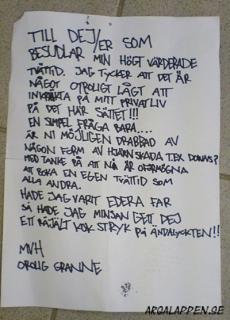 TILL DEJ/ER SOM
BESUDLAR MIN HÖGT VÄRDERADE
TVÄTTID. JAG TYCKER ATT DET ÄR
NÅGOT OTROLIGT LÅGT ATT
INKRÄKTA PÅ MITT PRIVATLIV
PÅ DET HÄR SÄTTET!!!
EN SIMPEL FRÅGA BARA....
ÄR NI MÖJLIGEN DRABBAD AV
NÅGON FORM AV HJÄRNSKADA T.EX DOWNS?
MED TANKE PÅ ATT NI ÄR OFÖRMÖGNA
ATT BOKA EN EGEN TVÄTTID SOM
ALLA ANDRA.
HADE JAG VARIT EDERA FAR
SÅ HADE JAG MINSAN GETT DEJ
ETT REJÄLT KOK STRYK PÅ ÄNDALYKTEN!!
MVH
OROLIG GRANNE
ARGALAPPEN.SE